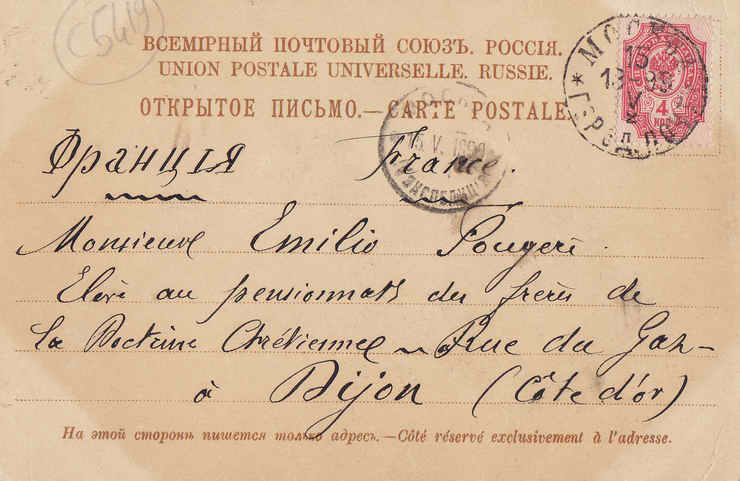 C5419
ВСЕМІРНЫЙ ПОЧТОВЫЙ СОЮЗЪ. РОССІЯ.
UNION POSTALE UNIVERSELLE. RUSSIE.
ОТКРЫТОЕ ПИСЬМО.—CARTE POSTALE
МОСКВА
4
КОП
15 V. 1899
ЭКСПЕДИЦІЯ
Франція France.
Monsieur Emilio Fougere
Elève au pensionnats du frères de
la Doctrine Chrétienne ~ Rue du Gaz—
à Dijon (Côte d'or)
На этой сторонѣ пишется только адресъ.—Côté réservé exclusivement à l'adresse.